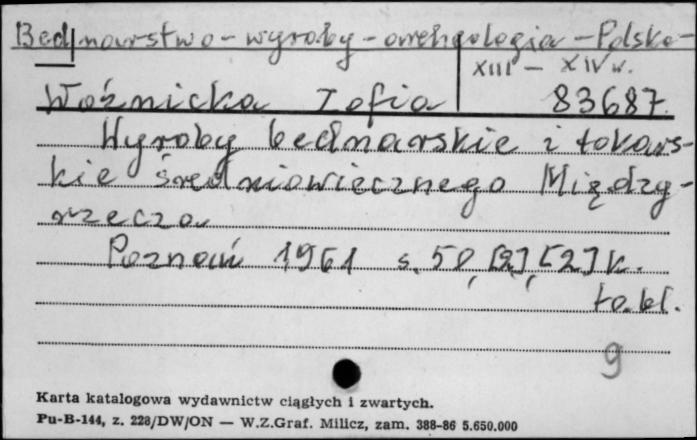 Bednarstwo - wyroby - archeologia - Polska -
XIII - XIV w.
Woźnicka Zofia 83687
Wyroby bednarskie i tokars-
kie średniowiecznego Między-
rzecza
Poznań 1961 s. 50, [2], [2] k.
tabl.
9
Karta katalogowa wydawnictw ciągłych i zwartych.
Pu-B-144, z. 228/DW/ON — W.Z.Graf. Milicz, zam. 388-86 5.650.000